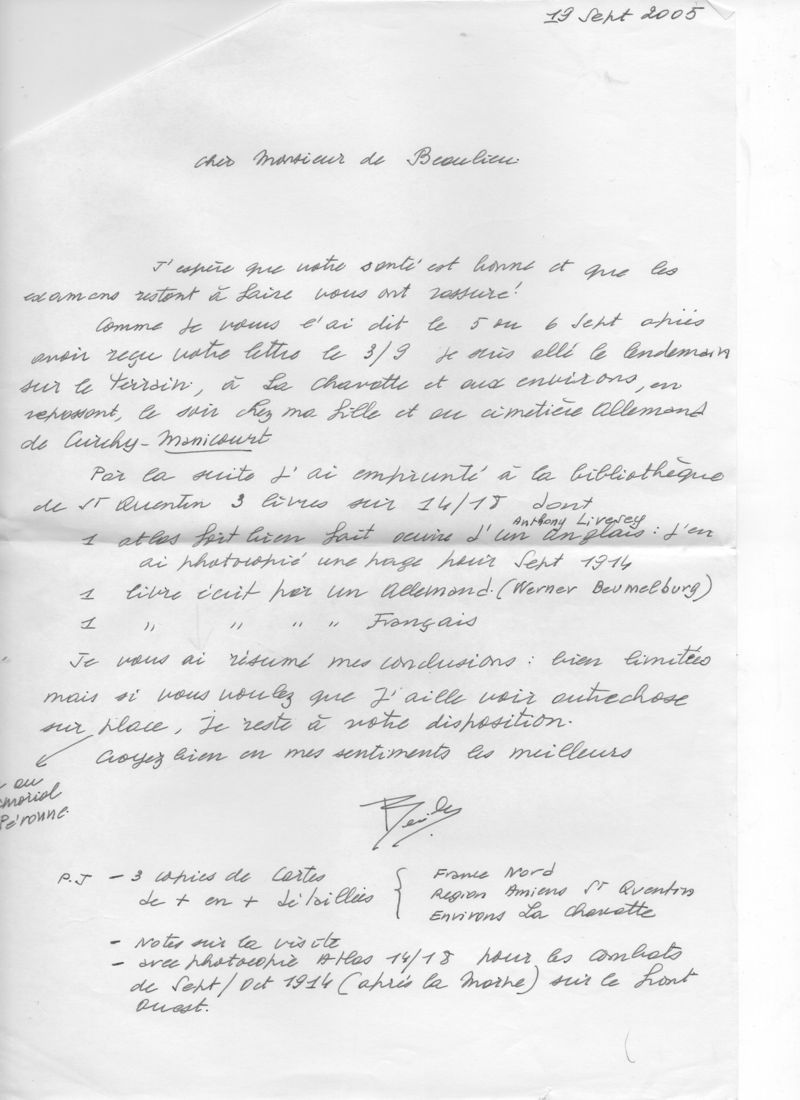 19 Sept 2005
Cher Monsieur de Beaulieu
J'espère que votre santé est bonne et que les
examens restant à faire vous ont rassuré!
Comme je vous l'ai dit le 5 ou 6 Sept après
avoir reçu votre lettre le 3/9 je suis allé le lendemain
sur le terrain, à La Chavatte et aux environs, en
repassant, le soir chez ma fille et au cimetière Allemand
de Curchy-Manicourt
Par la suite J'ai emprunté à la bibliothèque
de St Quentin 3 livres sur 14/18 dont
Anthony Livesey
1 atlas fort bien fait oeuvre d'un anglais : J'en
ai photocopié une page pour Sept 1914
1 livre écrit par un Allemand. (Werner Beumelburg)
1 " " " " Français
Je vous ai résumé mes conclusions : bien limitées
mais si vous voulez que J'aille voir autrechose
sur place, Je reste à votre disposition.
Croyez bien en mes sentiments les meilleurs
au
Péronne.
P.J - 3 copies de Cartes
de + en + détaillées
France Nord
Region Amiens St Quentin
Environs La Chavatte
- Notes sur la visite
- avec photocopie Atlas 14/18 pour les combats
de Sept/Oct 1914 (après la Marne) sur le front
Ouest.